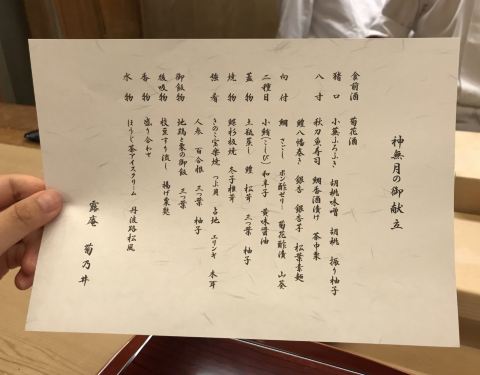 神無月の御献立
食前酒 菊花酒
猪口 小蕪ふろふき 胡桃味噌 胡桃 振り柚子
八寸 秋刀魚寿司 鯛香酒漬け 茶巾栗
鱧八幡巻き 銀杏 銀杏子 松葉素麺
向付 鯛 さごし ポン酢ゼリー 菊花酢漬 山葵
二種目 小鮪(こしび) 和辛子 黄味醤油
蓋物 土瓶蒸し 鱧 松茸 三つ葉 柚子
焼物 鰆杉板焼 冬子椎茸
強肴 きのこ宝楽焼 つぶ貝 占地 エリンギ 木耳
人参 百合根 三つ葉 柚子
御飯物 地鶏と栗の御飯 三つ葉
後吸物 枝豆すり流し 揚げ粟麩
香物 盛り合わせ
水物 ほうじ茶アイスクリーム 丹波路松風
露庵 菊乃井